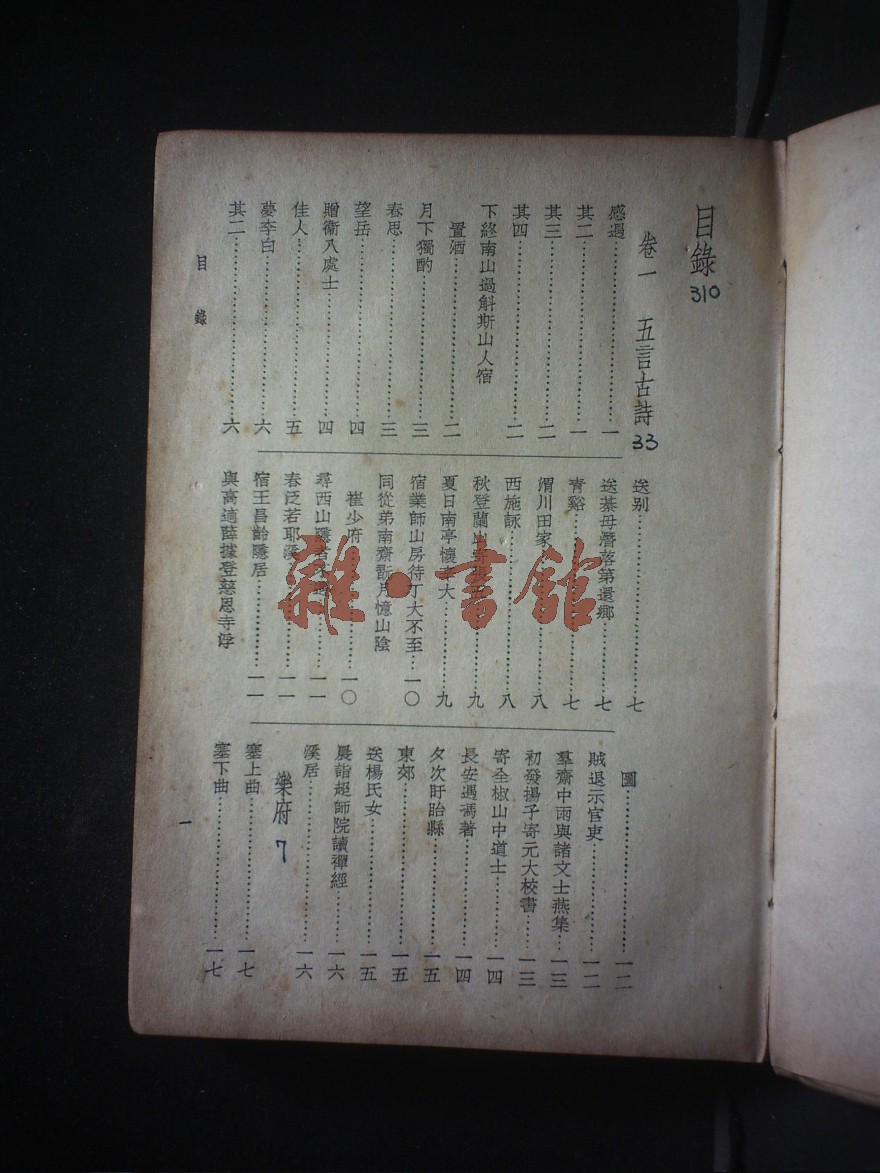 目錄 310
卷一 五言古詩 33
感遇……………一
其二……………一
其三……………二
其四……………二
下終南山過斛斯山人宿
置酒……………二
月下獨酌……………三
春思……………三
望岳……………四
贈衛八處士……………四
佳人……………五
夢李白……………六
其二……………六
送别……………七
送綦母潛落第還鄉……七
青谿……………七
渭川田家……………八
西施詠……………八
秋登蘭山寄張五……………九
夏日南亭懷辛大……………九
宿業師山房待丁大不至…一〇
同從弟南齋翫月憶山陰
崔少府……………一〇
尋西山隱者不遇……………一一
春泛若耶溪……………一一
宿王昌齡隱居……………一一
與高適薛據登慈恩寺浮
圖……………一二
賊退示官吏……………一二
羣齋中雨與諸文士燕集…一三
初發揚子寄元大校書……一三
寄全椒山中道士……………一四
長安遇馮著……………一四
夕次盱眙縣……………一五
東郊……………一五
送楊氏女……………一五
晨詣超師院讀禪經……一六
溪居……………一六
樂府 7
塞上曲……………一七
塞下曲……………一七
目錄
一
雜·書館